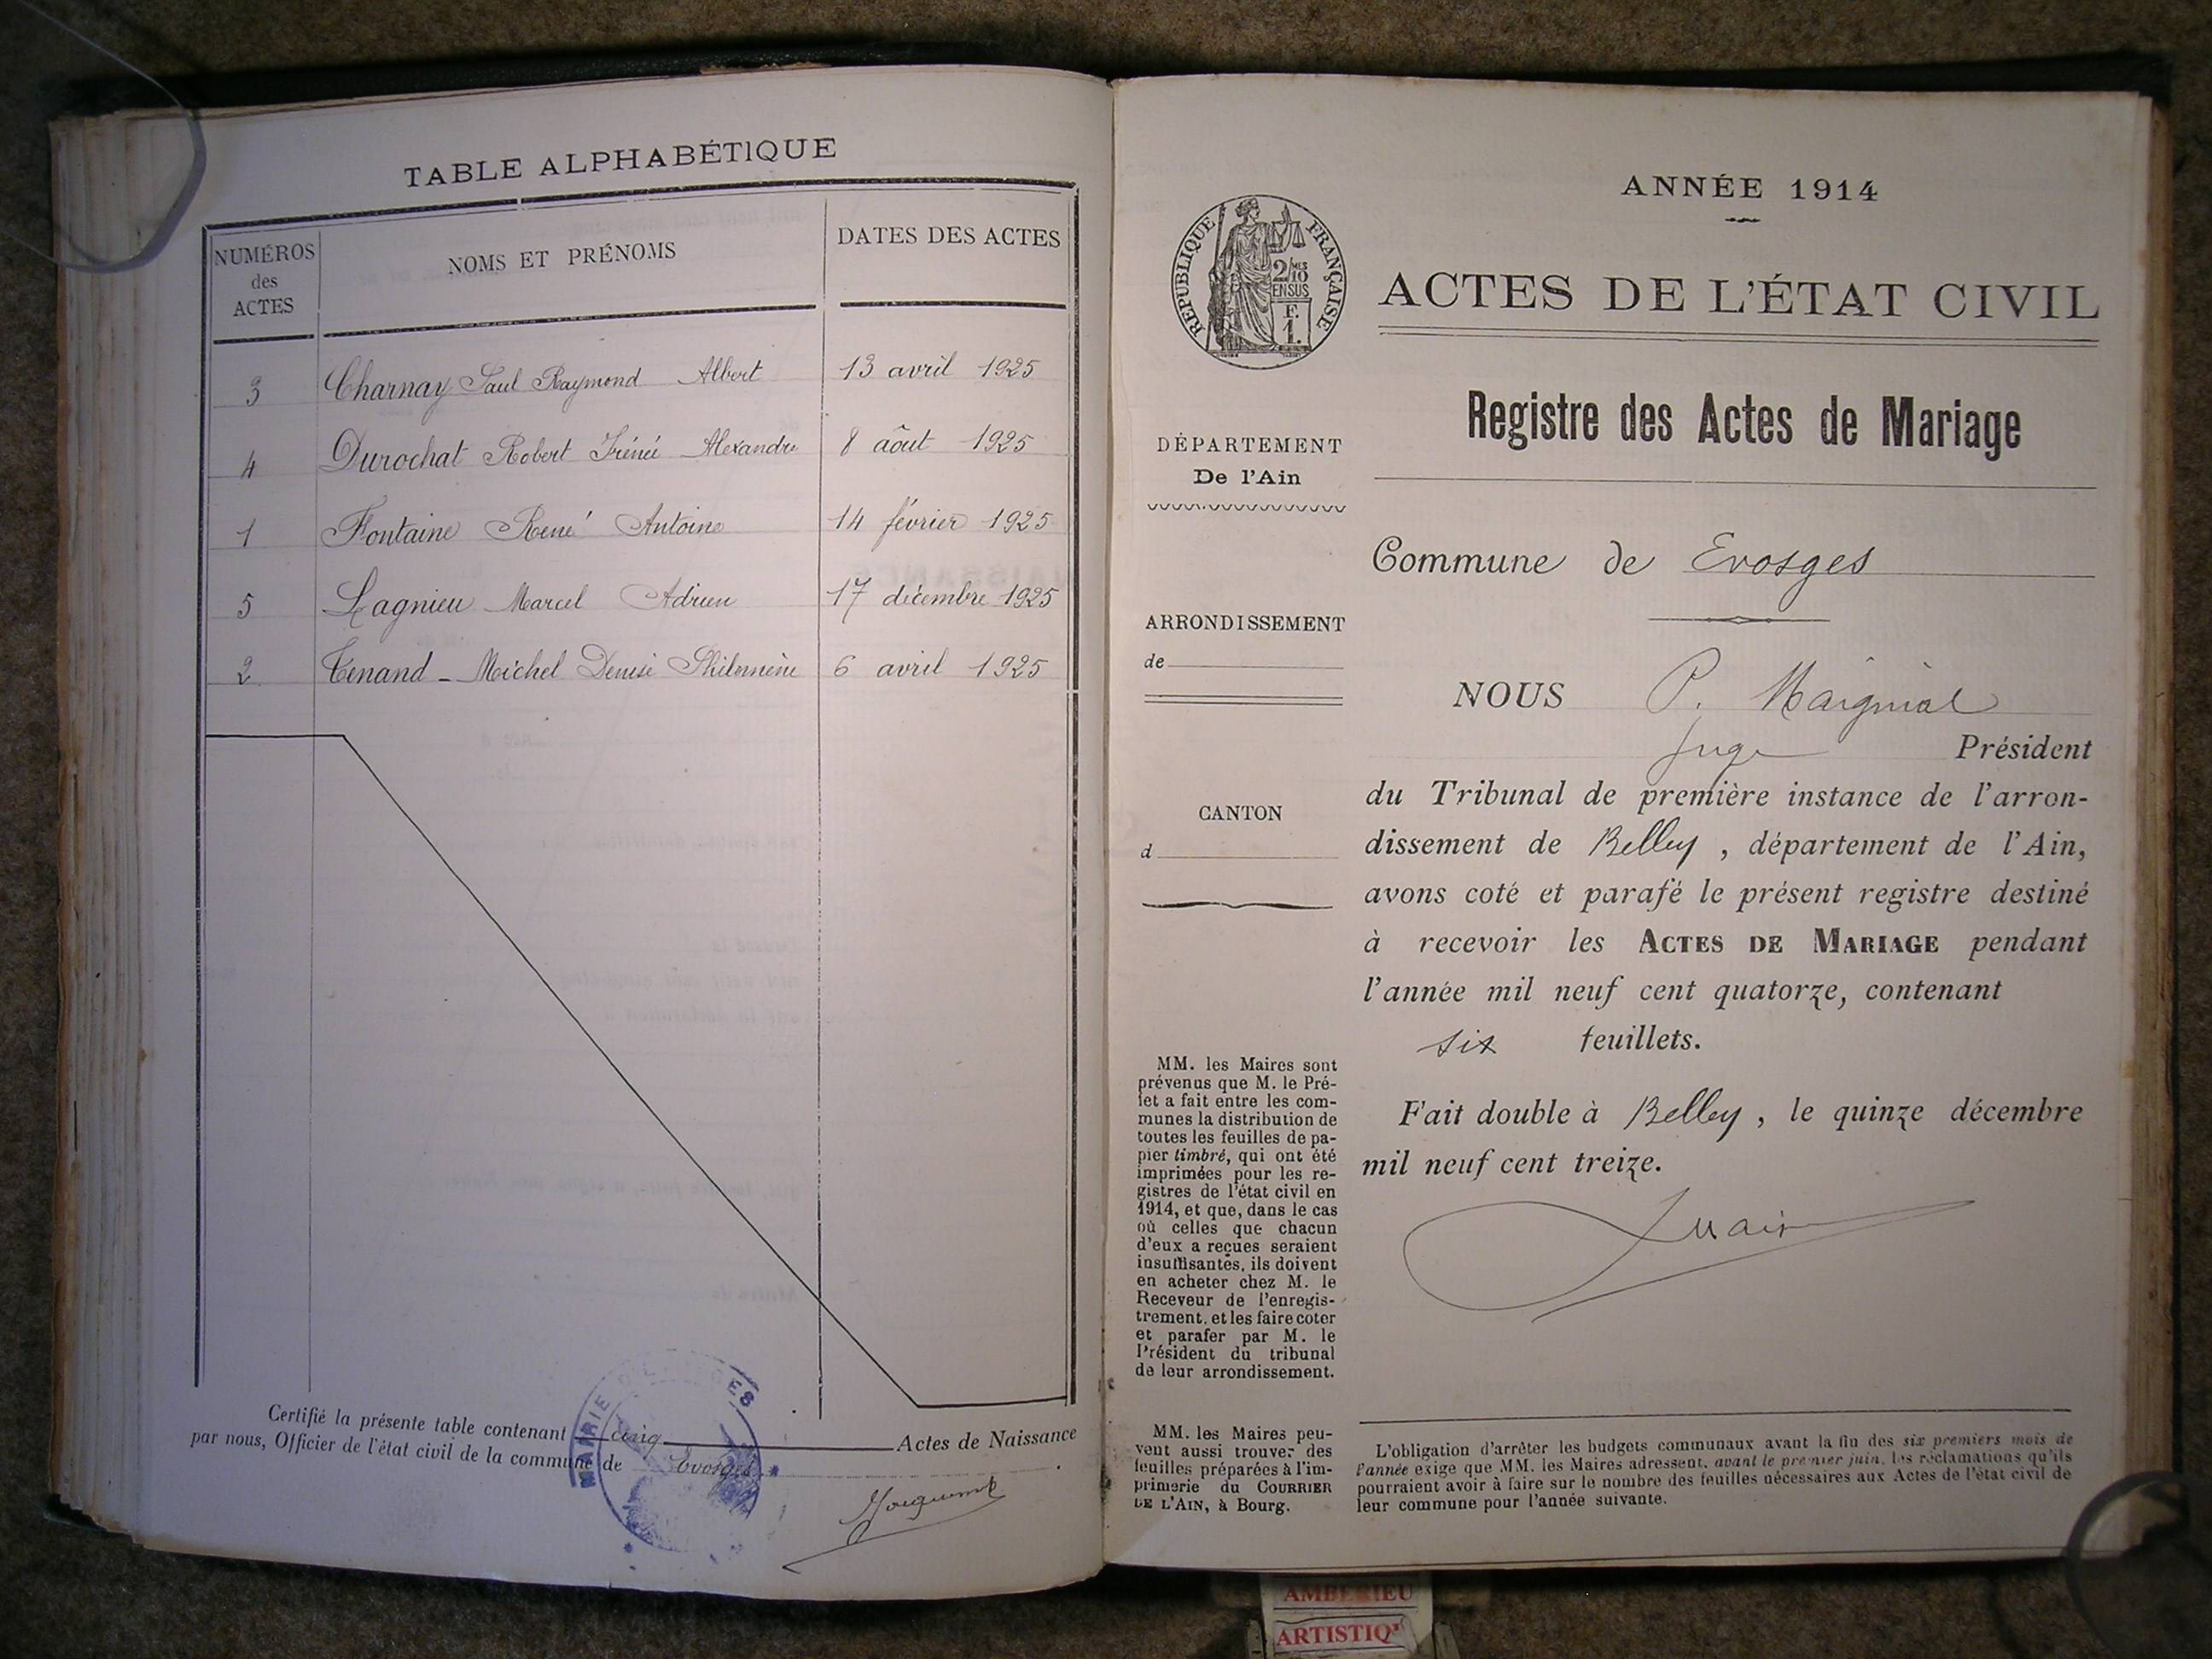 TABLE ALPHABÉTIQUE
NUMÉROS des ACTES
NOMS ET PRÉNOMS
DATES DES ACTES
3 Charnay Paul Raymond Albert 13 avril 1925
4 Durochat Robert Irénéé Alexandre 8 aôut 1925
1 Fontaine René Antoine 14 février 1925
5 Lagnieu Marcel Adrien 17 décembre 1925
2 Tenand - Michel Denise Philomène 6 avril 1925
Certifié la présente table contenant cinq Actes de Naissance
par nous, Officier de l'état civil de la commune de Evosges
MAIRIE D'EVOSGES
ANNÉE 1914
RÉPUBLIQUE FRANÇAISE
2/10 MES
EN SUS
F.
1.
ACTES DE L'ÉTAT CIVIL
Registre des Actes de Mariage
DÉPARTEMENT
De l'Ain
Commune de Evosges
ARRONDISSEMENT
de
CANTON
d
NOUS P. Maignial
Juge Président
du Tribunal de première instance de l'arron-
dissement de Belley, département de l'Ain,
avons coté et parafé le présent registre destiné
à recevoir les ACTES DE MARIAGE pendant
l'année mil neuf cent quatorze, contenant
six feuillets.
Fait double à Belley, le quinze décembre
mil neuf cent treize.
MM. les Maires sont
prévenus que M. le Pré-
fet a fait entre les com-
munes la distribution de
toutes les feuilles de pa-
pier timbré, qui ont été
imprimées pour les re-
gistres de l'état civil en
1914, et que, dans le cas
où celles que chacun
d'eux a reçues seraient
insuffisantes, ils doivent
en acheter chez M. le
Receveur de l'enregis-
trement, et les faire coter
et parafer par M. le
Président du tribunal
de leur arrondissement.
MM. les Maires peu-
vent aussi trouver des
feuilles préparées à l'im-
primerie du COURRIER
DE L'AIN, à Bourg.
L'obligation d'arrêter les budgets communaux avant la fin des six premiers mois de
l'année exige que MM. les Maires adressent, avant le premier juin, les réclamations qu'ils
pourraient avoir à faire sur le nombre des feuilles nécessaires aux Actes de l'état civil de
leur commune pour l'année suivante.
AMBERIEU
ARTISTIQ